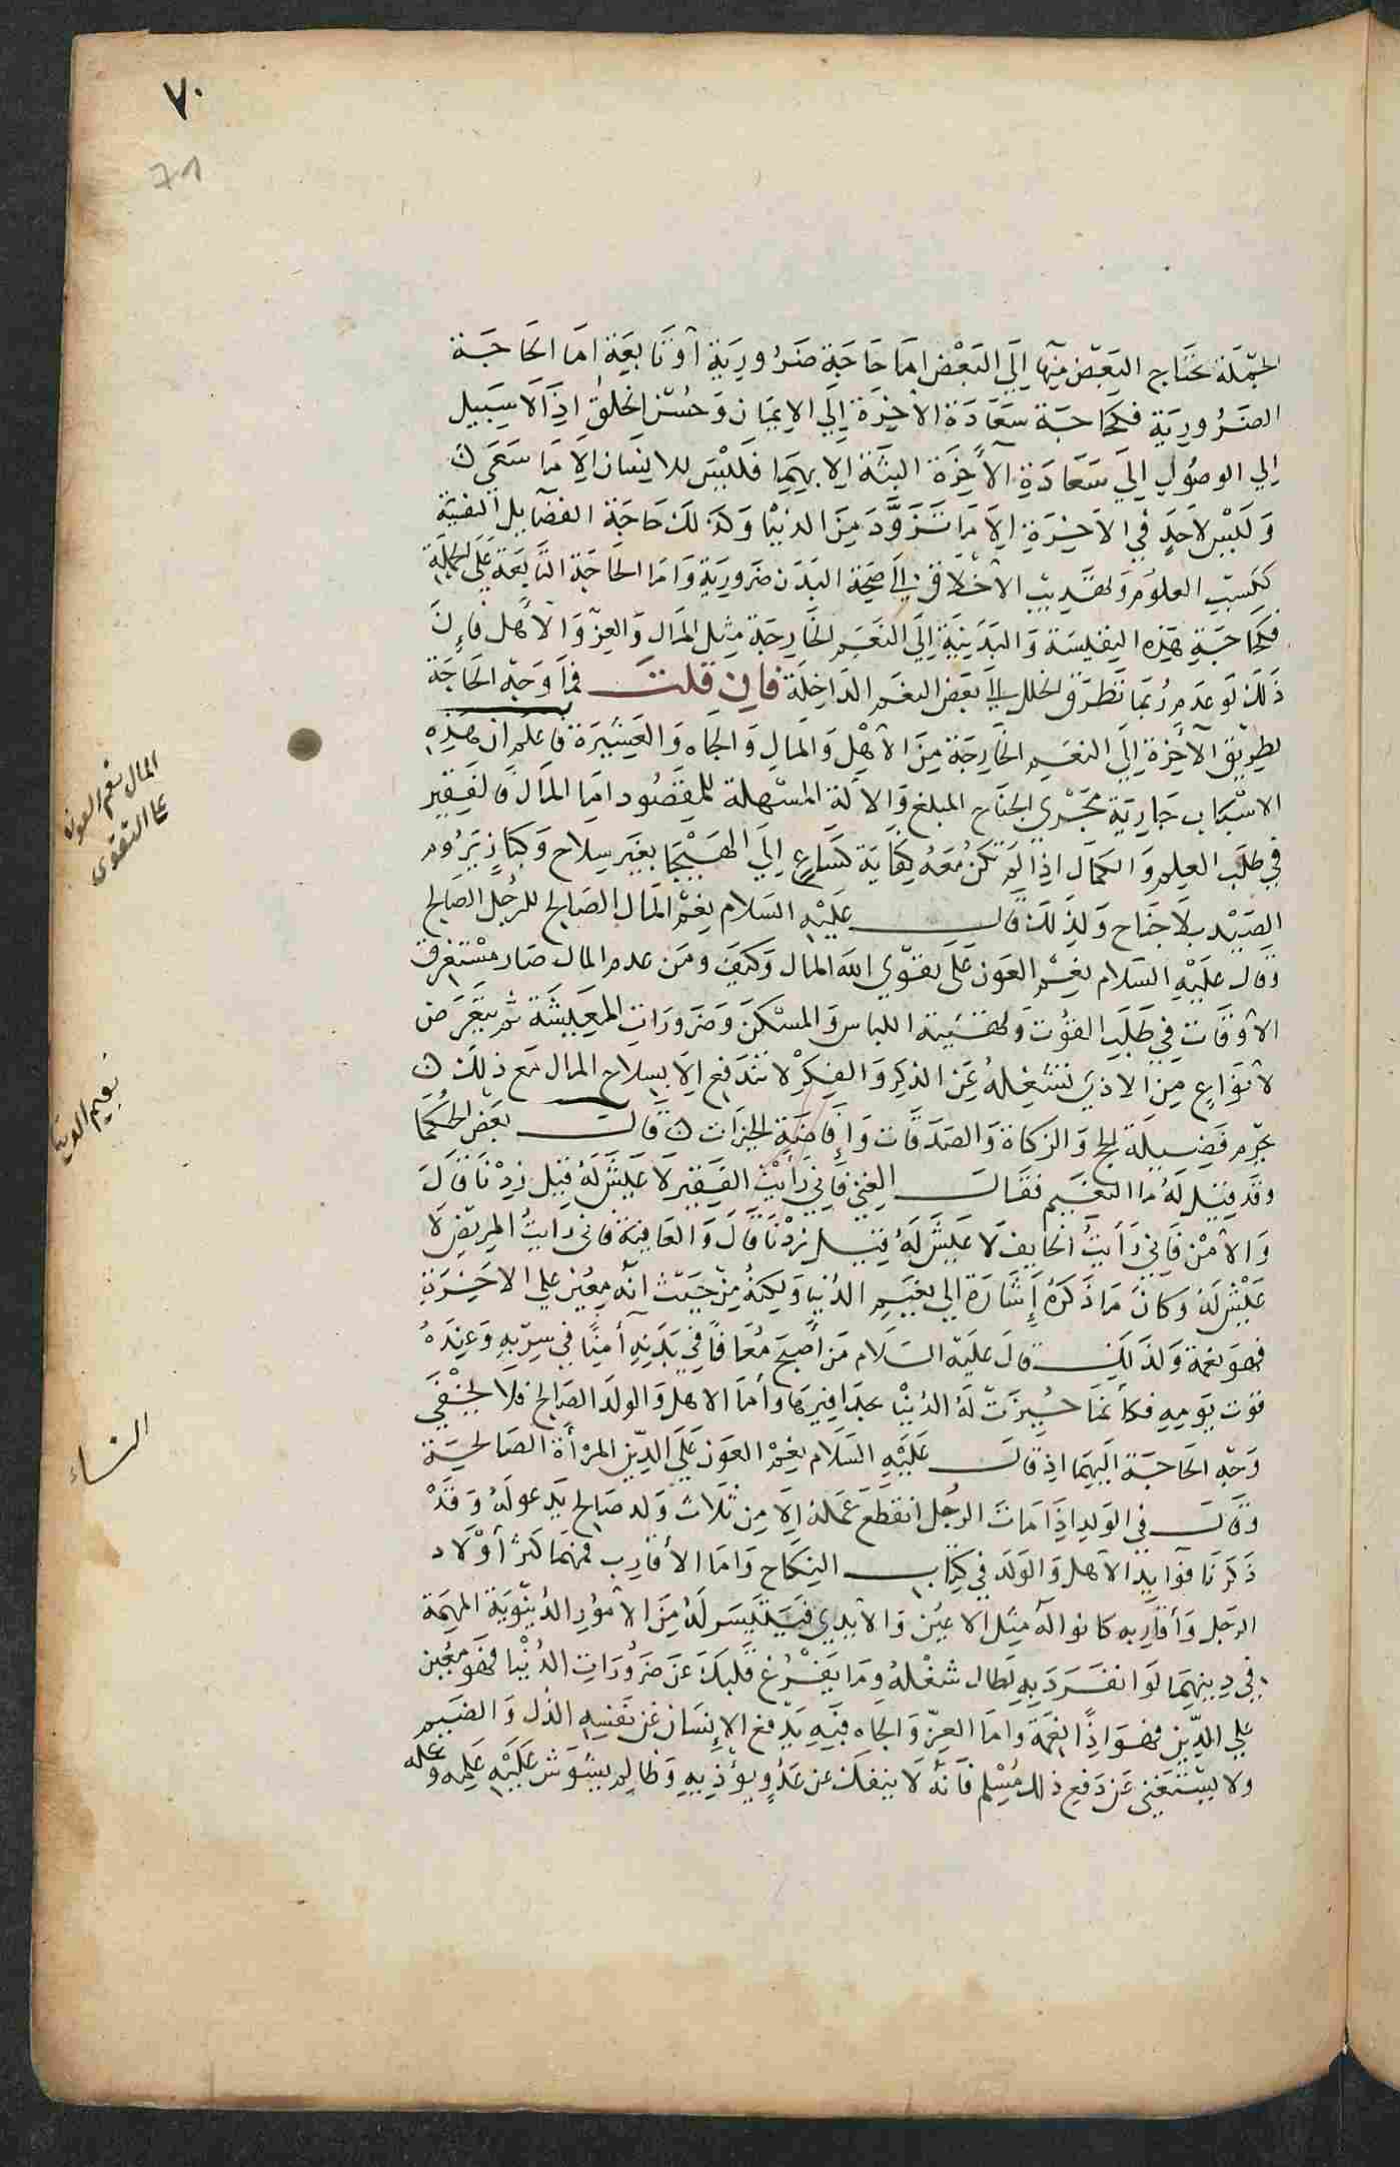 ٧٠
71
الجملة تحتاج البعض منها إلى البعض اما حاجة ضرورية أو نافعة اما الحاجة
الضرورية فكحاجة سعادة الآخرة إلى الايمان وحسن الخلق اذ لا سبيل
إلى الوصول إلى سعادة الآخرة البتة الا بهما فليس للانسان الا ما سعى ن
وليس لاحد في الآخرة الا ما تزود من الدنيا وكذلك حاجة الفضايل النفسية
ككسب العلوم وتهذيب الاخلاق إلى صحة البدن ضرورية واما الحاجة النافعة على الجملة
فكحاجة هذه النفسية والبدنية إلى النعم الخارجة مثل المال والعز والأهل فإن
ذلك لو عدم ربما تطرق الخلل إلى بعض النعم الداخلة فان قلت فما وجه الحاجة
لطريق الآخرة إلى النعم الخارجة من الأهل والمال والجاه والعشيرة فاعلم ان هذه
الاسباب جارية مجرى الجناح المبلغ والالة المسهلة للمقصود اما المال فالفقير
في طلب العلم والكمال اذا لم تكن معه كفاية كساع إلى الهيجا بغير سلاح وكباز يروم
الصيد بلا جناح ولذلك قال عليه السلام نعم المال الصالح للرجل الصالح
وقال عليه السلام نعم العون على تقوى الله المال وكيف ومن عدم المال صار مستغرق
الاوقات في طلب القوت وتهيئة اللباس والمسكن وضرورات المعيشة ثم يتعرض
لانواع من الاذى تشغله عن الذكر والفكر لا تندفع الا بسلاح المال مع ذلك ن
يحرم فضيلة الحج والزكاة والصدقات وإفاضة الخيرات ن قال بعض الحكما
وقد قيل له ما النعيم فقال الغنى فاني رأيت الفقير لا عيش له قيل زدنا قال
والأمن فاني رأيت الخايف لا عيش له قيل زدنا قال والعافية فاني رايت المريض لا
عيش له وكان ما ذكره إشارة إلى نعيم الدنيا ولكنه من حيث انه معين على الآخرة
فهو نعمة ولذلك قال عليه السلام من أصبح معافا في بدنه آمنا في سربه وعنده
قوت يومه فكأنما حيزت له الدنيا بحذافيرها وأما الاهل والولد الصالح فلا يخفى
وجه الحاجة اليهما اذ قال عليه السلام نعم العون على الدين المرأة الصالحة
وقال في الولد اذا مات الرجل انقطع عمله إلا من ثلاث ولد صالح يدعو له وقد
ذكرنا فوائد الأهل والولد في كتاب النكاح واما الأقارب فمهما كثر أولاد
الرجل وأقاربه كانوا له مثل الأعين والأيدي فيتيسر له من الأمور الدنيوية المهمة
في دينه ما لو انفرد به لطال شغله وما يفرغ قلبك عن ضرورات الدنيا فهو معين
على الدين فهو اذا نعمة واما العز والجاه فبه يدفع الإنسان عن نفسه الذل والضيم
ولا يستغني عن دفع ذلك مسلم فانه لا ينفك عن عدو يؤذيه وظالم يشوش عليه علمه وعمله
المال نعم العون
على التقوى
نعيم الدنيا
النساء